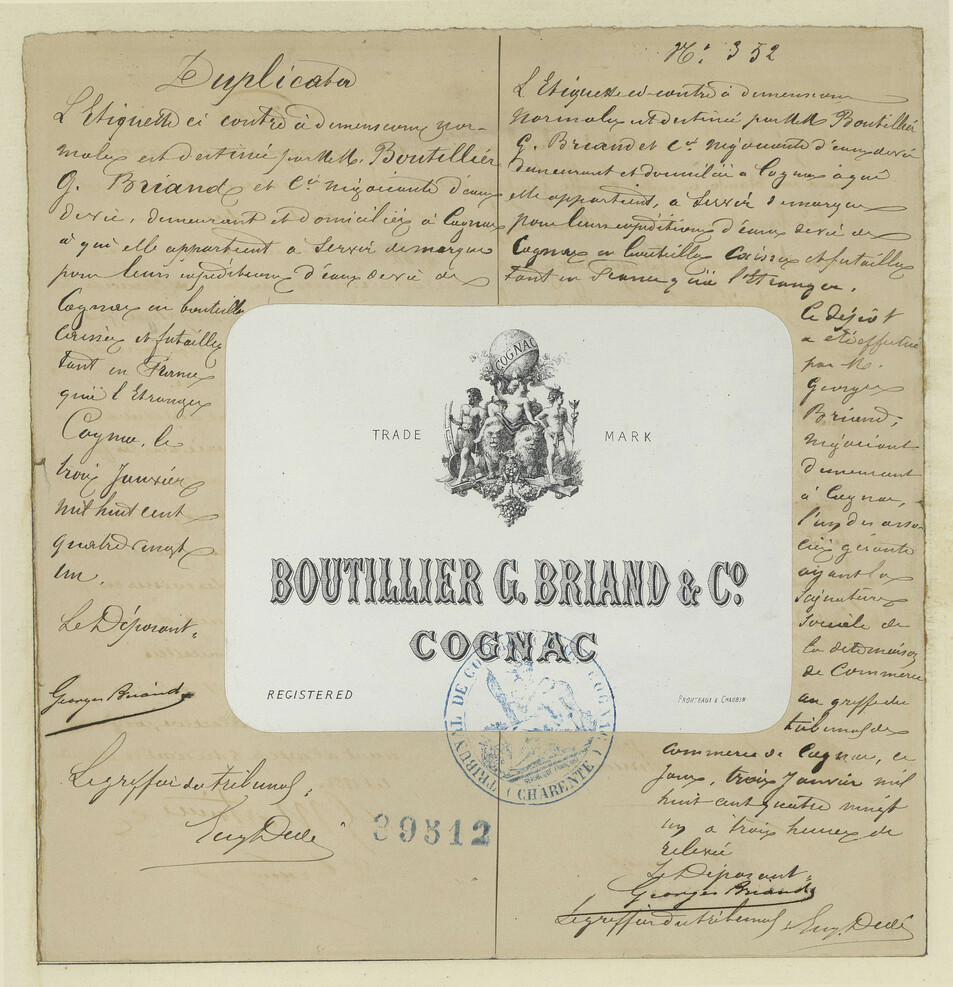 Duplicata
L'Etiquette ci contre à dimensions nor-
males est destinée par M.M. Boutillier
G. Briand et Cie négociants d'eaux
de vie, demeurant et domiciliés à Cognac
à qui elle appartient à servir de marque
pour leurs expéditions d'eaux de vie de
Cognac en bouteilles
caisses et futailles
tant en France
qu'à l'Etranger
Cognac, le
trois Janvier
mil huit cent
quatre vingt
un.
Le Déposant,
Georges Briand
Le greffier du tribunal,
Eug. Dedé
39512
N.° 352
L'Etiquette ci-contre à dimensions
normales est destinée par M.M. Boutillier
G. Briand et Cie négociants d'eaux de vie
demeurant et domiciliés à Cognac à qui
elle appartient, à servir de marque
pour leurs expéditions d'eaux de vie de
Cognac en bouteilles caisses et futailles
tant en France qu'à l'Etranger.
Ce dépôt
a été effectué
par M.
Georges
Briand,
négociant
demeurant
à Cognac,
l'un des asso-
ciés gérants
ayant la
signature
sociale de
la dite maison
de Commerce
au greffe du
tribunal de
commerce de Cognac, ce
jour, trois Janvier mil
huit cent quatre vingt
un à trois heures de
relevée
Le Déposant,
Georges Briand
Le greffier du tribunal,
Eug. Dedé
COGNAC
TRADE MARK
BOUTILLIER G. BRIAND & Cº.
COGNAC
REGISTERED
FROITEAUX & CHAUBIN
TRIBUNAL DE COGNAC
(CHARENTE)